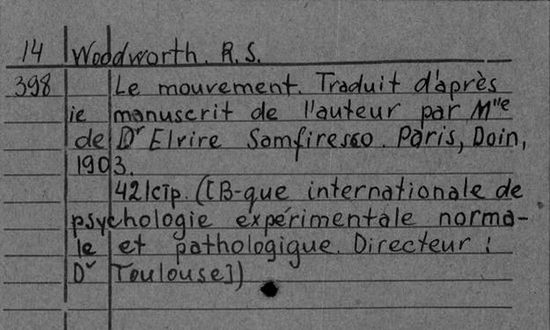 14 Woodworth. R.S.
398 Le mouvement. Traduit d'après
ie manuscrit de l'auteur par Mlle
de Dr Elvire Samfiresso. Paris, Doin,
1903.
421cтр. ([B-que internationale de
psychologie expérimentale norma-
le et pathologique. Directeur :
Dr Toulouse])